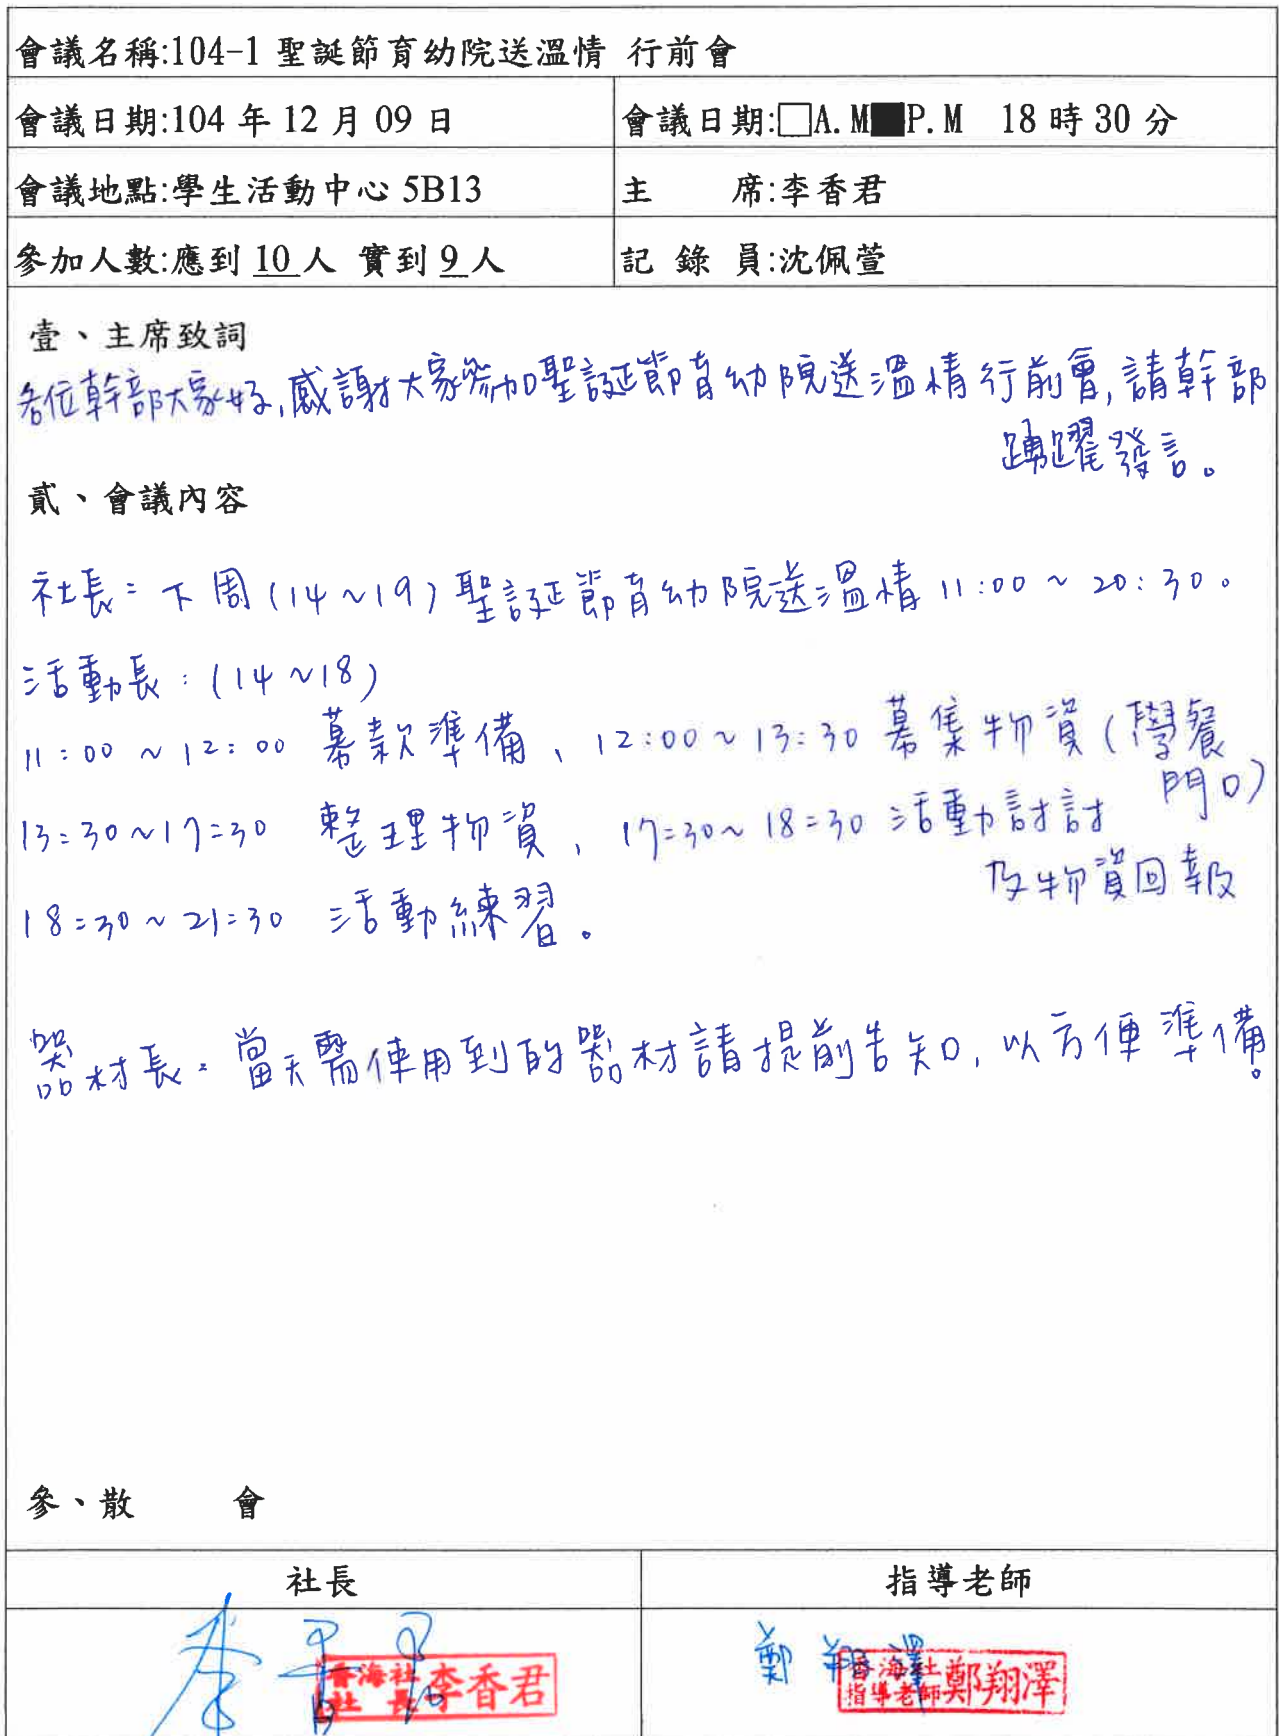 會議名稱:104-1 聖誕節育幼院送溫情 行前會
會議日期:104 年 12 月 09 日 會議日期:□A.M■P.M 18 時 30 分
會議地點:學生活動中心 5B13 主 席:李香君
參加人數:應到 10 人 實到 9 人 記 錄 員:沈佩萱
壹、主席致詞
各位幹部大家好,感謝大家參加聖誕節育幼院送溫情行前會,請幹部
踴躍發言。
貳、會議內容
社長:下周(14~19)聖誕節育幼院送溫情 11:00 ~ 20:30。
活動長:(14~18)
11:00 ~ 12:00 募款準備、12:00 ~ 13:30 募集物資(學餐
門口)
13:30~17:30 整理物資、17:30~18:30 活動討討
及物資回報
18:30~21:30 活動練習。
器材長:當天需使用到的器材請提前告知,以方便準備。
參、散 會
社長 指導老師
李香君 鄭翔澤
香海社 社長 李香君
香海社 指導老師 鄭翔澤